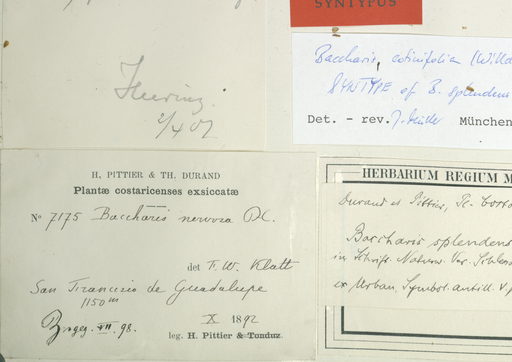 SYNTYPUS
Heering.
2/4 07
Baccharis cotinifolia (Willd
SYNTYPE of B. splendens
Det. - rev. J. Müller München
H. PITTIER & TH. DURAND
Plantæ costaricenses exsiccatæ
No 7175 Baccharis nervosa DC.
det F. W. Klatt
San Francisco de Guadalupe
1150 m
X 1892
VII 98.
leg. H. Pittier & Tonduz
HERBARIUM REGIUM M
Durand et Pittier, Pl. Costa
Baccharis splendens
in Schrift. Naturw. Ver. Schlesw
ex Urban, Symbol. antill. V p